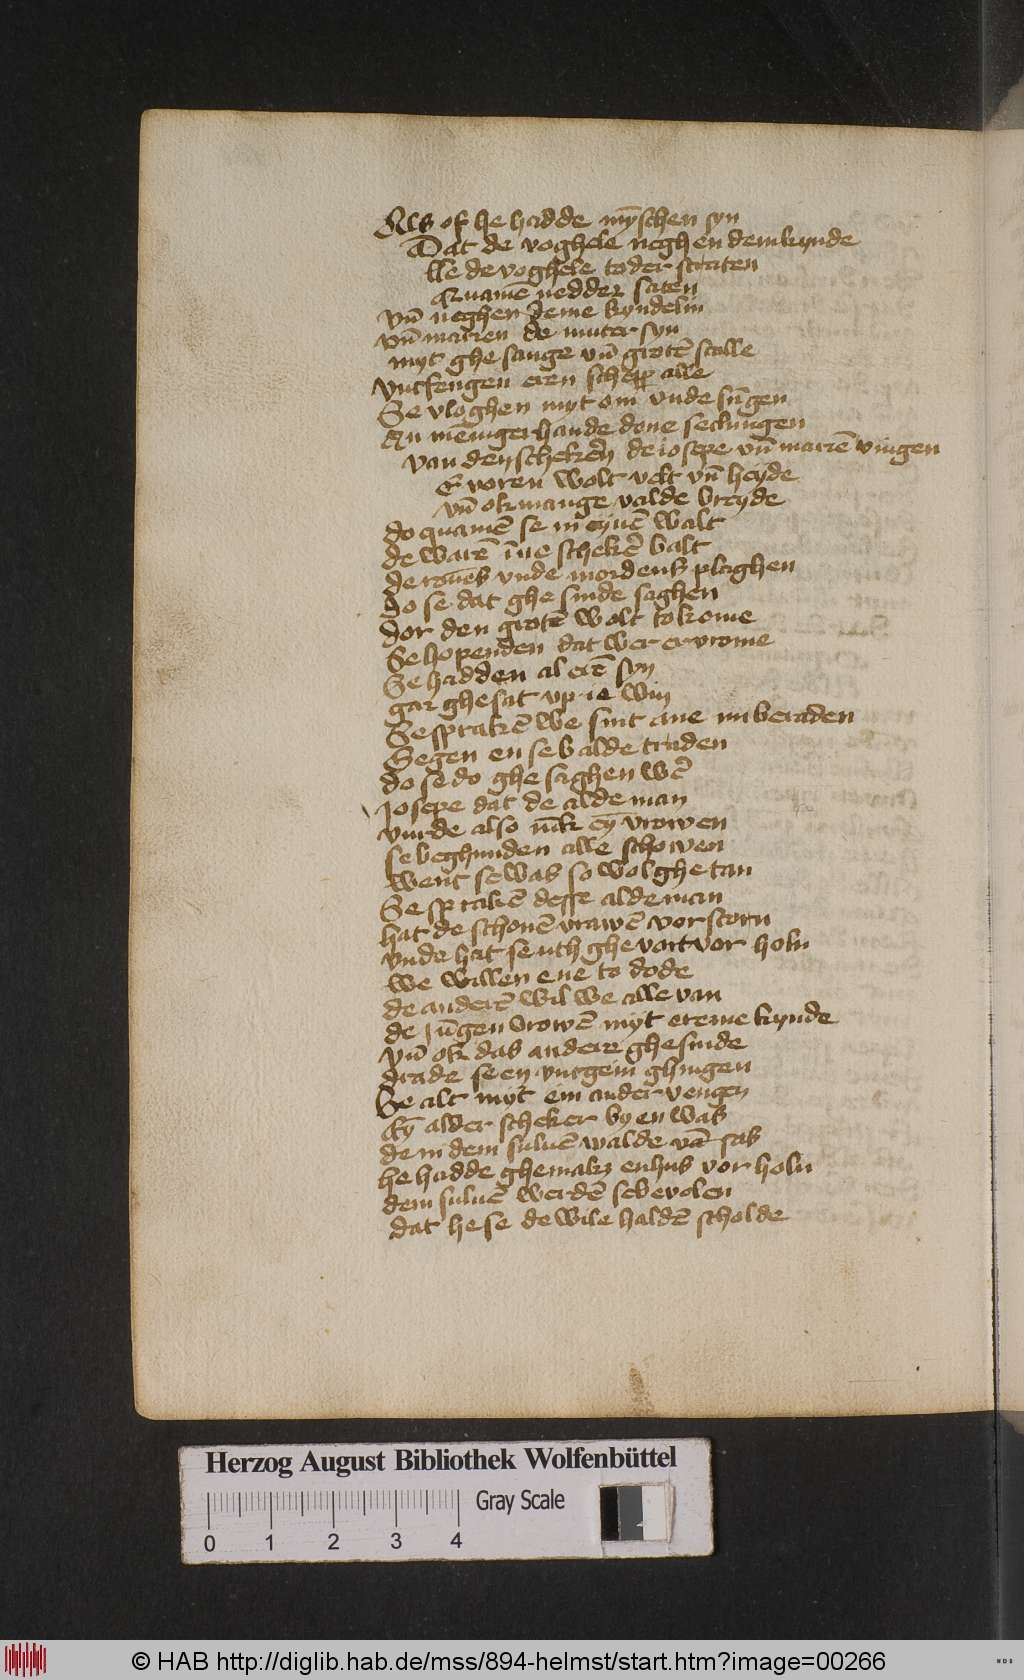 Als of he hadde mȳschen syn
Dat de voghele neghen dem kynde
lle de voghele to der straten
Quamē nedder saten
vn̄ neghen deme kyndelin
vn̄ marien de muter syn
myt ghesange vn̄ grotē scalle
vntfengen eren schepp alle
Se vloghen myt om vnde sūgen
An mēnigerhande done se clungen
van den schekern̄ de iosepe vn̄ mariē vingen
E voren wolt velt vn̄ heyde
vn̄ ok mange valde breyde
do quamē se in eynē walt
de warē īne schekē balt
de roues vnde mordens plaghen
do se dat ghesinde seghen
dor den grotē wolt to kome
Se hopenden dat wer er vrome
Se hadden al erē syn
gar ghesat vp ie win
Se sprakē we sint ane vnberaden
Gegen en se balde traden
do se do ghesaghen wē
Josepe dat de alde man
vurde also mk eȳ vrowen
se beghunden alle schowen
went se was so wolghetan
Se sprakē desse alde man
hat de schonē vrawē vorstorn
vnde hat se uth ghevort vor holn
we willen ene to dode
de anderē wil we alle van
de jūgen vrowē myt ereme kynde
vn̄ ok das andere ghesinde
drade se en vntgein ghingen
Se alt myt ein ander vengen
Eȳ alder scheker by en was
de in dem suluē walde vā sas
he hadde ghemakz en hus vor holn
dem suluē werdē se bevolen
dat he se de wile haldē scholde
Herzog August Bibliothek Wolfenbüttel
Gray Scale
0 1 2 3 4
© HAB http://diglib.hab.de/mss/894-helmst/start.htm?image=00266